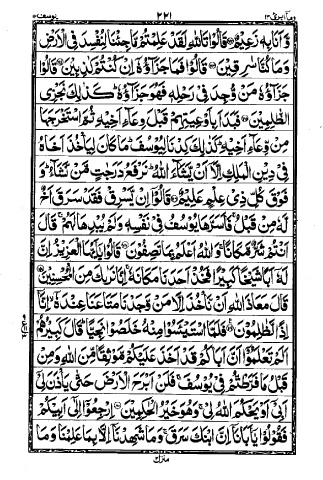 وما ابرئ ۱۳ ۲۲۱ یوسف ۱۲
وَّاَنَا بِهٖ زَعِيْمٌ قَالُوْا تَاللّٰهِ لَقَدْ عَلِمْتُمْ مَّا جِئْنَا لِنُفْسِدَ فِى الْاَرْضِ
وَمَا كُنَّا سٰرِقِيْنَ قَالُوْا فَمَا جَزَآؤُهٗۤ اِنْ كُنْتُمْ كٰذِبِيْنَ قَالُوْا
جَزَآؤُهٗ مَنْ وُّجِدَ فِىْ رَحْلِهٖ فَهُوَ جَزَآؤُهٗ كَذٰلِكَ نَجْزِى
الظّٰلِمِيْنَ فَبَدَاَ بِاَوْعِيَتِهِمْ قَبْلَ وِعَآءِ اَخِيْهِ ثُمَّ اسْتَخْرَجَهَا
مِنْ وِّعَآءِ اَخِيْهِ كَذٰلِكَ كِدْنَا لِيُوْسُفَ مَا كَانَ لِيَاْخُذَ اَخَاهُ
فِىْ دِيْنِ الْمَلِكِ اِلَّاۤ اَنْ يَّشَآءَ اللّٰهُ نَرْفَعُ دَرَجٰتٍ مَّنْ نَّشَآءُ وَ
فَوْقَ كُلِّ ذِىْ عِلْمٍ عَلِيْمٌ قَالُوْۤا اِنْ يَّسْرِقْ فَقَدْ سَرَقَ اَخٌ
لَّهٗ مِنْ قَبْلُ فَاَسَرَّهَا يُوْسُفُ فِىْ نَفْسِهٖ وَلَمْ يُبْدِهَا لَهُمْ قَالَ
اَنْتُمْ شَرٌّ مَّكَانًا وَاللّٰهُ اَعْلَمُ بِمَا تَصِفُوْنَ قَالُوْا يٰۤاَيُّهَا الْعَزِيْزُ اِنَّ
لَهٗۤ اَبًا شَيْخًا كَبِيْرًا فَخُذْ اَحَدَنَا مَكَانَهٗ اِنَّا نَرٰىكَ مِنَ الْمُحْسِنِيْنَ
قَالَ مَعَاذَ اللّٰهِ اَنْ نَّاْخُذَ اِلَّا مَنْ وَّجَدْنَا مَتَاعَنَا عِنْدَهٗۤ اِنَّاۤ
اِذًا لَّظٰلِمُوْنَ فَلَمَّا اسْتَيْـَٔسُوْا مِنْهُ خَلَصُوْا نَجِيًّا قَالَ كَبِيْرُهُمْ
اَلَمْ تَعْلَمُوْۤا اَنَّ اَبَاكُمْ قَدْ اَخَذَ عَلَيْكُمْ مَّوْثِقًا مِّنَ اللّٰهِ وَمِنْ
قَبْلُ مَا فَرَّطْتُّمْ فِىْ يُوْسُفَ فَلَنْ اَبْرَحَ الْاَرْضَ حَتّٰى يَاْذَنَ لِىْۤ
اَبِىْۤ اَوْ يَحْكُمَ اللّٰهُ لِىْ وَهُوَ خَيْرُ الْحٰكِمِيْنَ اِرْجِعُوْۤا اِلٰٓى اَبِيْكُمْ
فَقُوْلُوْا يٰۤاَبَانَاۤ اِنَّ ابْنَكَ سَرَقَ وَمَا شَهِدْنَاۤ اِلَّا بِمَا عَلِمْنَا وَمَا
منزل ۳